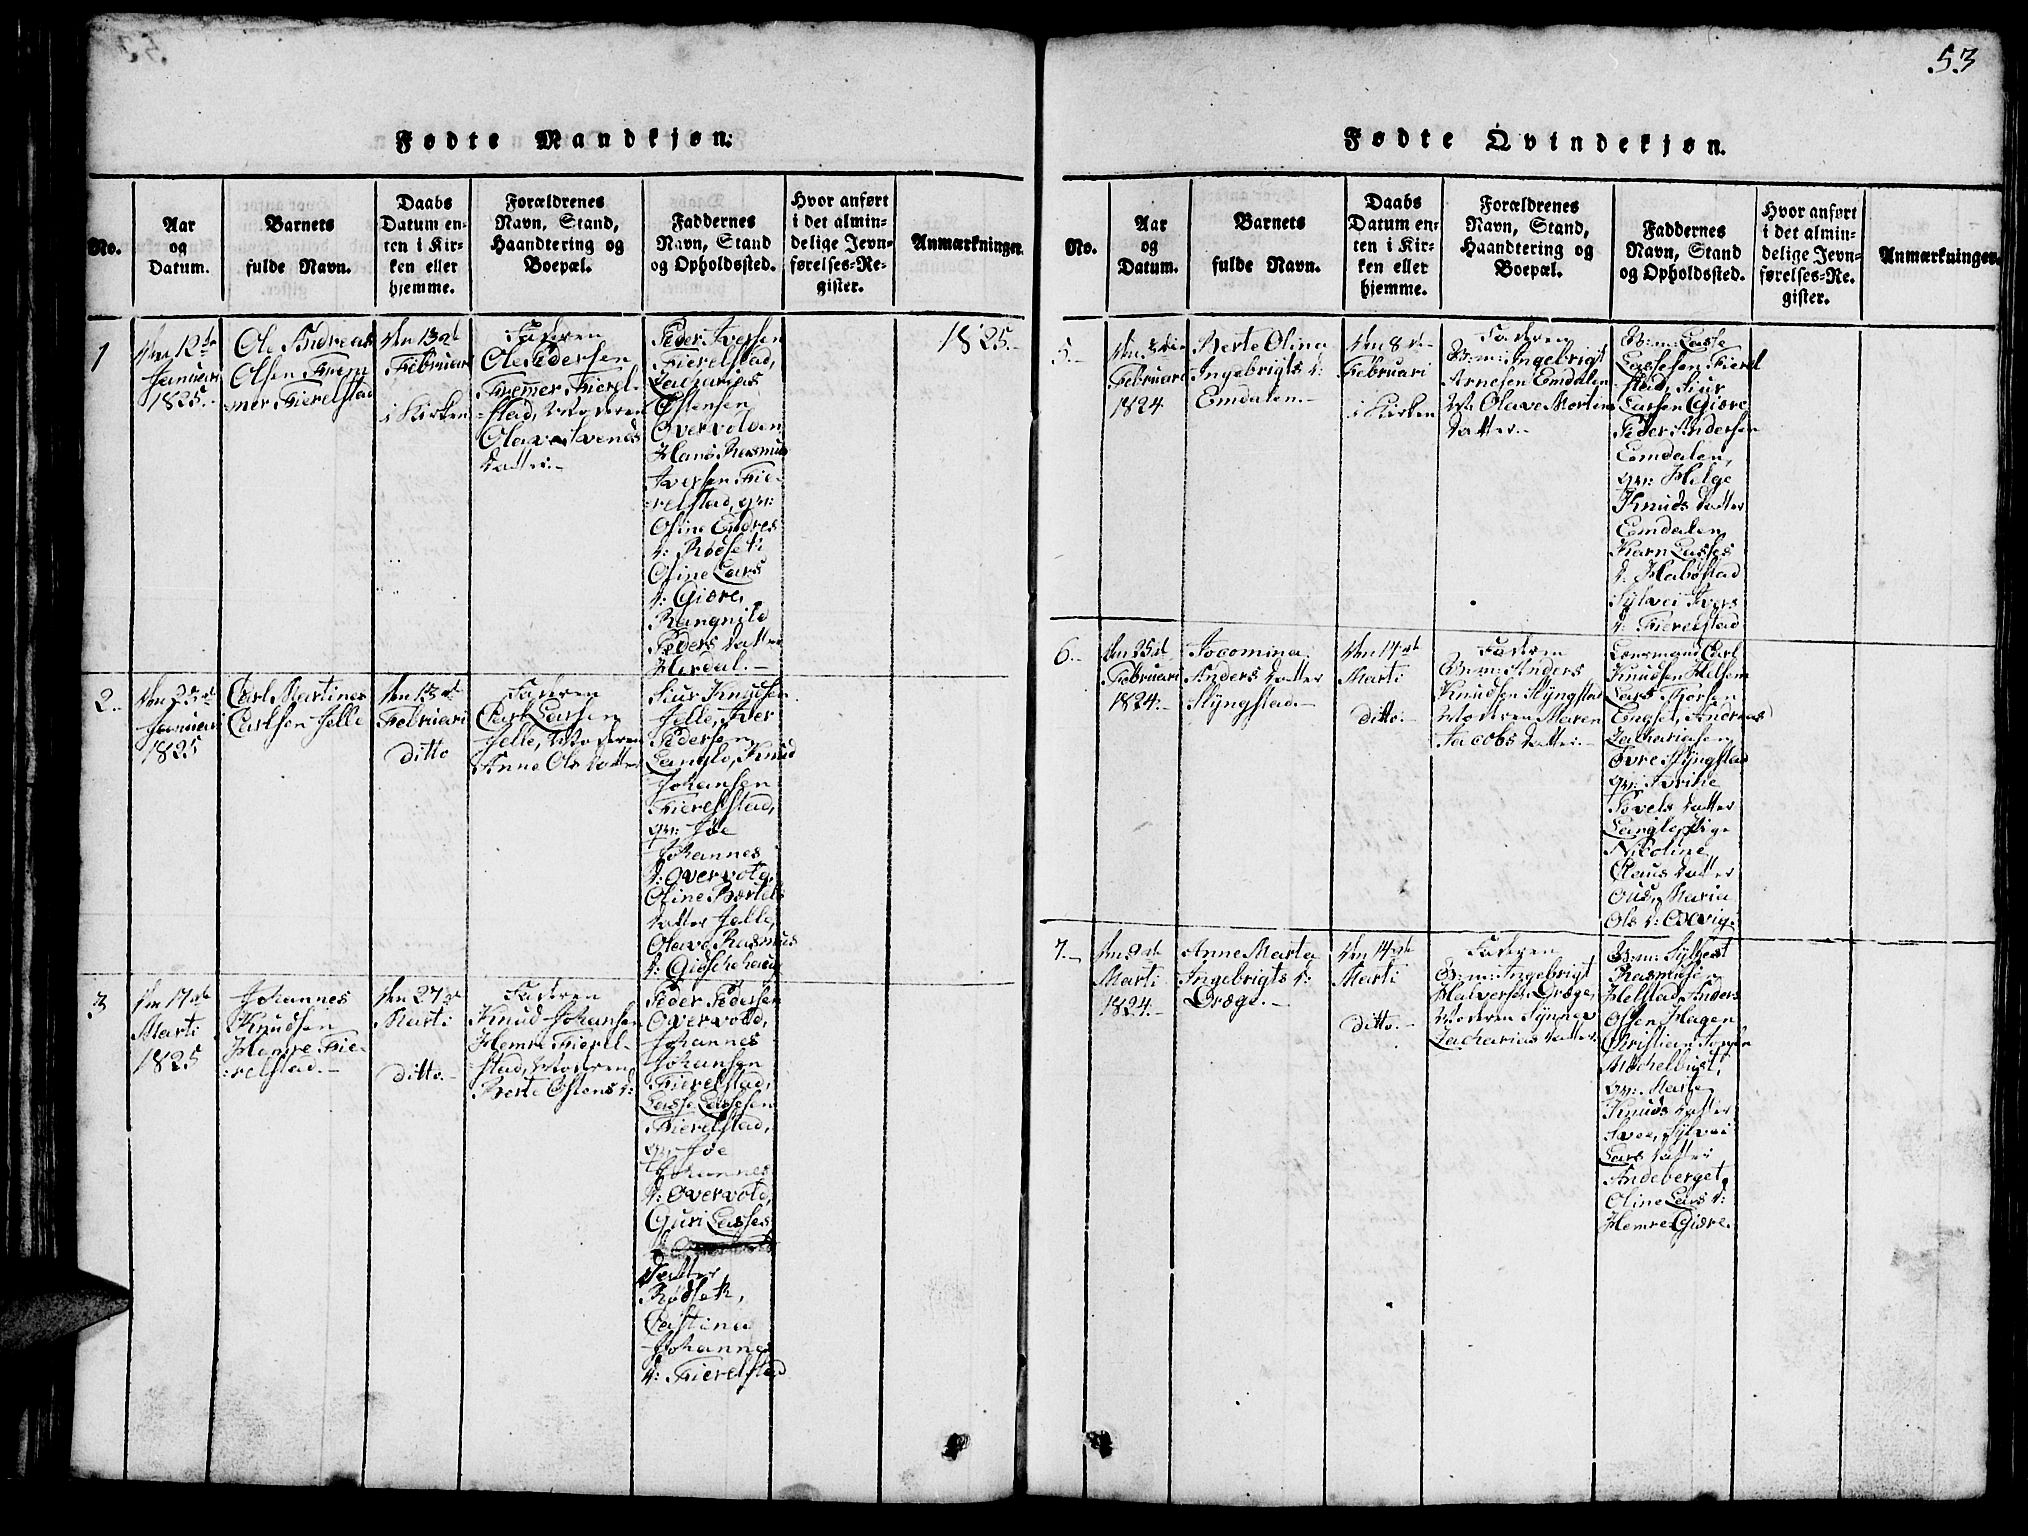 53
Fødte Mandkjøn:
No.
Aar
og
Datum.
Barnets
fulde Navn.
Daabs
Datum en-
ten i Kir-
ken eller
hjemme.
Forældrenes
Navn, Stand,
Haandtering og
Boepæl.
Faddernes
Navn, Stand
og Opholdssted.
Hvor anført
i det almin-
delige Jevn-
førelses-Re-
gister.
Anmærkninger.
1
den 12te
Januari
1825.-
Ole Andreas
Olsen
Fierelstad
den 13de
Februari
i Kirken
Faderen
Ole Pedersen
Fierel-
stad, Moderen
Olave Svends
datter.-
Peder Iversen
Fierelstad,
Zacharias
Østensen
Overvolden
Hans Rasmus
Iversen Fie-
relstad, qv:
Oline Endres
d: Rødset
Oline Lars
d: Giøre,
Rangnild
Peders datter
Herdal.-
1825.-
2.
den 23de
Januari
1825
Carl Martines
Carlsen Jelle
den 13de
Februari
ditto
Faderen
Carl Larsen
Jelle, Moderen
Anne Ols datter
Siur Knudsen
Jelle, Iver
Pedersen
Langlo, Knud
Johansen
Fierelstad,
qv:
Johannes
d: Overvold,
Oline Bertels
datter Jelle,
Olave Rasmus
d:
3
den 17de
Marti
1825
Johannes
Knudsen
Hemre Fie-
relstad.-
den 27de
Marti
ditto.-
Faderen
Knud Johansen
Hemre Fierel-
stad, Moderen
Berte Østens d:
Peder Pedersen
Overvold,
Johannes
Johansen
Fierelstad,
Lasse Lassesen
Fierelstad,
qv:
Johannes
d: Overvold,
Guri Lasses
datter
Rødset,
Johannes
d: Fierelstad
Fødte Qvindekjøn.
No.
Aar
og
Datum.
Barnets
fulde Navn.
Daabs
Datum en-
ten i Kir-
ken eller
hjemme.
Forældrenes
Navn, Stand,
Haandtering og
Boepæl.
Faddernes
Navn, Stand
og Opholdssted.
Hvor anført
i det almin-
delige Jevn-
førelses-Re-
gister.
Anmærkninger.
5.-
Februari
1824
Berte Olina
Ingebrigts d:
Emdalen.-
den 8de
Februari
i Kirken
Faderen
G:m: Ingebrigt
Arnesen Emdalen
M: Olave Mortins
datter.-
G:m: Lasse
Lassesen Fierel
stad, Siur
Larsen Giøre
Peder Andersen
Emdalen,
qv: Helge
Knuds datter
Emdalen
Karn Lasses
d: Habostad
Sylvei Ivers
d: Fierelstad
6.-
den 25de
Februari
1824.-
Jocomina
Anders datter
Slyngstad.-
den 14de
Marti
ditto.-
Faderen
G:m: Anders
Knudsen Slyngstad
Moderen Maren
Jacobs datter.-
Lensmand Carl
Knudsen Helsem
Lars
Engset, Andreas
Zachariasen
Øvre Slyngstad
qv:
Povels datter
Langlo, Pige
Nikoline
Claus datter
Gud, Maria
Ols d:
7.-
den 9de
Marti
1824.-
Anne Marta
Ingebrigts d:
Drøge.-
den 14de
Marti
ditto.-
Faderen
G:m: Ingebrigt
Halversen Drøge,
Moderen Synnev
Zacharias datter
G:m: Sylfest
Rasmusen
Helstad, Anders
Olsen Hagen
Christian
Mochelbust,
qv: Marte
Knuds datter
Svoe, Sylvei
Lars datter
Andeberget,
Oline Lars d:
Hemre Giøre.